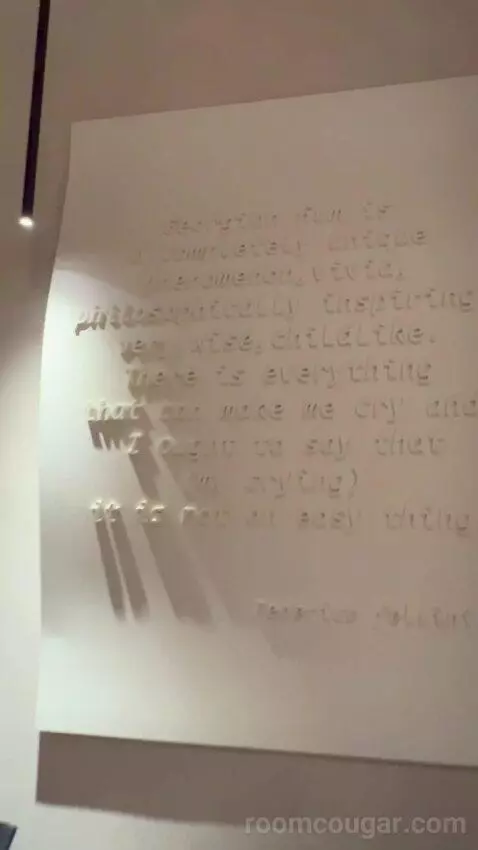 Georgian film is
a completely unique
phenomenon, vivid,
philosophically inspiring
very wise, childlike.
There is everything
that can make me cry and
I ought to say that
(my crying)
it is not an easy thing
Federico Fellini
roomcougar.com